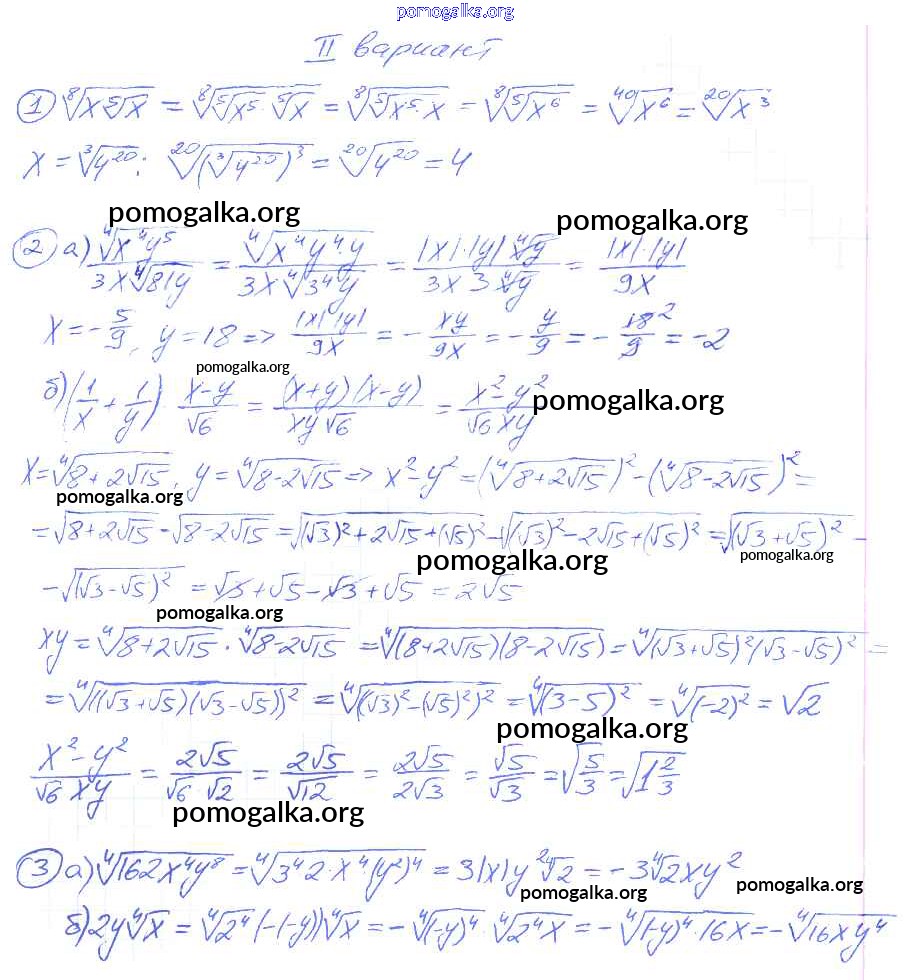 pomogalka.org
II вариант
① ⁸√(x ⁵√x) = ⁸√(⁵√x⁵ · ⁵√x) = ⁸√(⁵√(x⁵ · x)) = ⁸√(⁵√x⁶) = ⁴⁰√x⁶ = ²⁰√x³
x = ³√4²⁰ : ²⁰√((³√4²⁰)³) = ²⁰√4²⁰ = 4
pomogalka.org pomogalka.org
② а) ⁴√(x⁴y⁵) / (3x ⁴√(81y)) = ⁴√(x⁴y⁴·y) / (3x·⁴√(3⁴y)) = |x|·|y| ⁴√y / (3x 3 ⁴√y) = |x|·|y| / 9x
x = -5/9, y = 18 => |x|·|y| / 9x = - xy/9x = - y/9 = - 18²/9 = -2
pomogalka.org
б) (1/x + 1/y) (x-y)/√6 = (x+y)(x-y) / (xy√6) = (x²-y²) / (√6 xy)
pomogalka.org
x = ⁴√(8+2√15), y = ⁴√(8-2√15) => x²-y² = (⁴√(8+2√15))² - (⁴√(8-2√15))² =
pomogalka.org
= √(8+2√15) - √(8-2√15) = √((√3)²+2√15+(√5)²) - √((√3)²-2√15+(√5)²) = √((√3+√5)²) -
pomogalka.org pomogalka.org
- √((√3-√5)²) = √3+√5-√3+√5 = 2√5
pomogalka.org
xy = ⁴√(8+2√15) · ⁴√(8-2√15) = ⁴√((8+2√15)(8-2√15)) = ⁴√((√3+√5)²(√3-√5)²) =
= ⁴√(((√3+√5)(√3-√5))²) = ⁴√(((√3)²-(√5)²)²) = ⁴√((3-5)²) = ⁴√((-2)²) = √2
pomogalka.org
(x²-y²) / (√6 xy) = 2√5 / (√6·√2) = 2√5/√12 = 2√5/2√3 = √5/√3 = √(5/3) = √(1 2/3)
pomogalka.org
③ а) ⁴√(162x⁴y⁸) = ⁴√(3⁴·2·x⁴·(y²)⁴) = 3|x|y² ⁴√2 = -3 ⁴√2 xy²
pomogalka.org pomogalka.org
б) 2y ⁴√x = ⁴√2⁴ (-(-y)) ⁴√x = - ⁴√((-y)⁴) · ⁴√(2⁴x) = - ⁴√((-y)⁴·16x) = - ⁴√(16xy⁴)